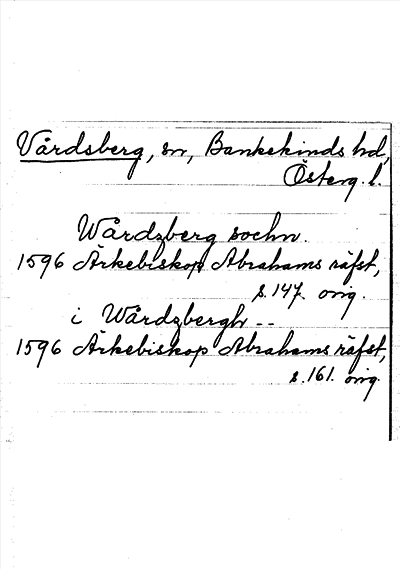 Vårdsberg, sn, Bankekinds hd,
Österg. l.
Wårdzberg sochn.
1596 Ärkebiskop Abrahams räfst,
s. 147. orig.
i Wårdzbergh --
1596 Ärkebiskop Abrahams räfst,
s. 161. orig.